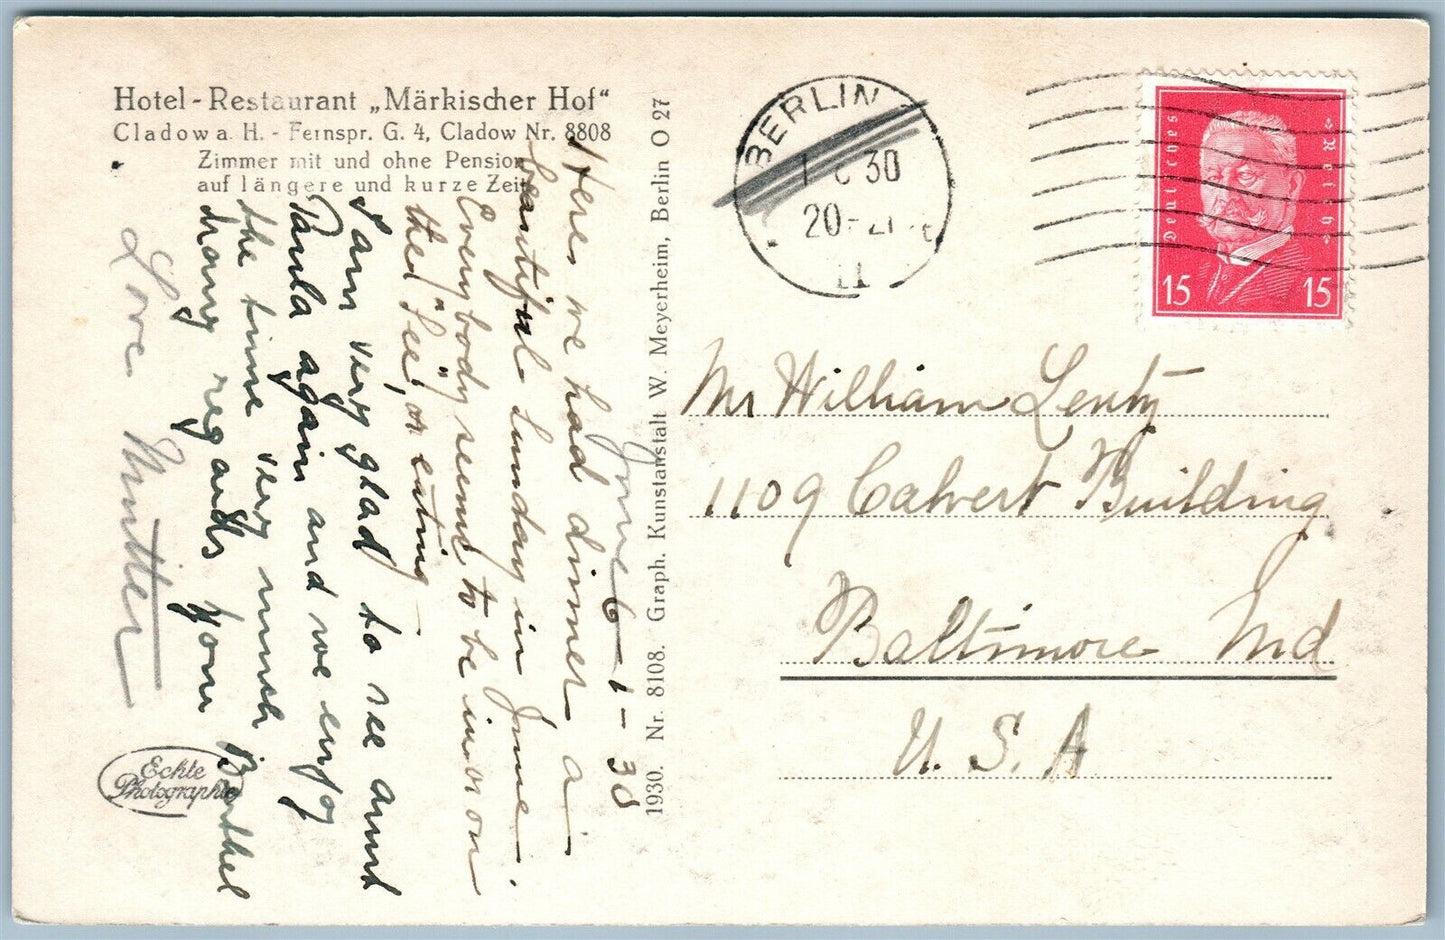 Hotel-Restaurant „Märkischer Hof“
Cladow a. H. - Fernspr. G. 4, Cladow Nr. 8808
Zimmer mit und ohne Pension
auf längere und kurze Zeit
June 6-1-30
Here we had dinner a
beautiful Sunday in June.
Everybody seems to be in or on
the "See", or eating –
I am very glad to see aunt
Paula again and we enjoy
the time very much
many regards your Barthel
Love Mutter
Echte
Photographie
1930. Nr. 8108. Graph. Kunstanstalt W. Meyerheim, Berlin O 27
BERLIN
30
20-21
11
Deutsches
Reich
15 15
Mr William Lentz
1109 Calvert Building
Baltimore Md
U.S.A